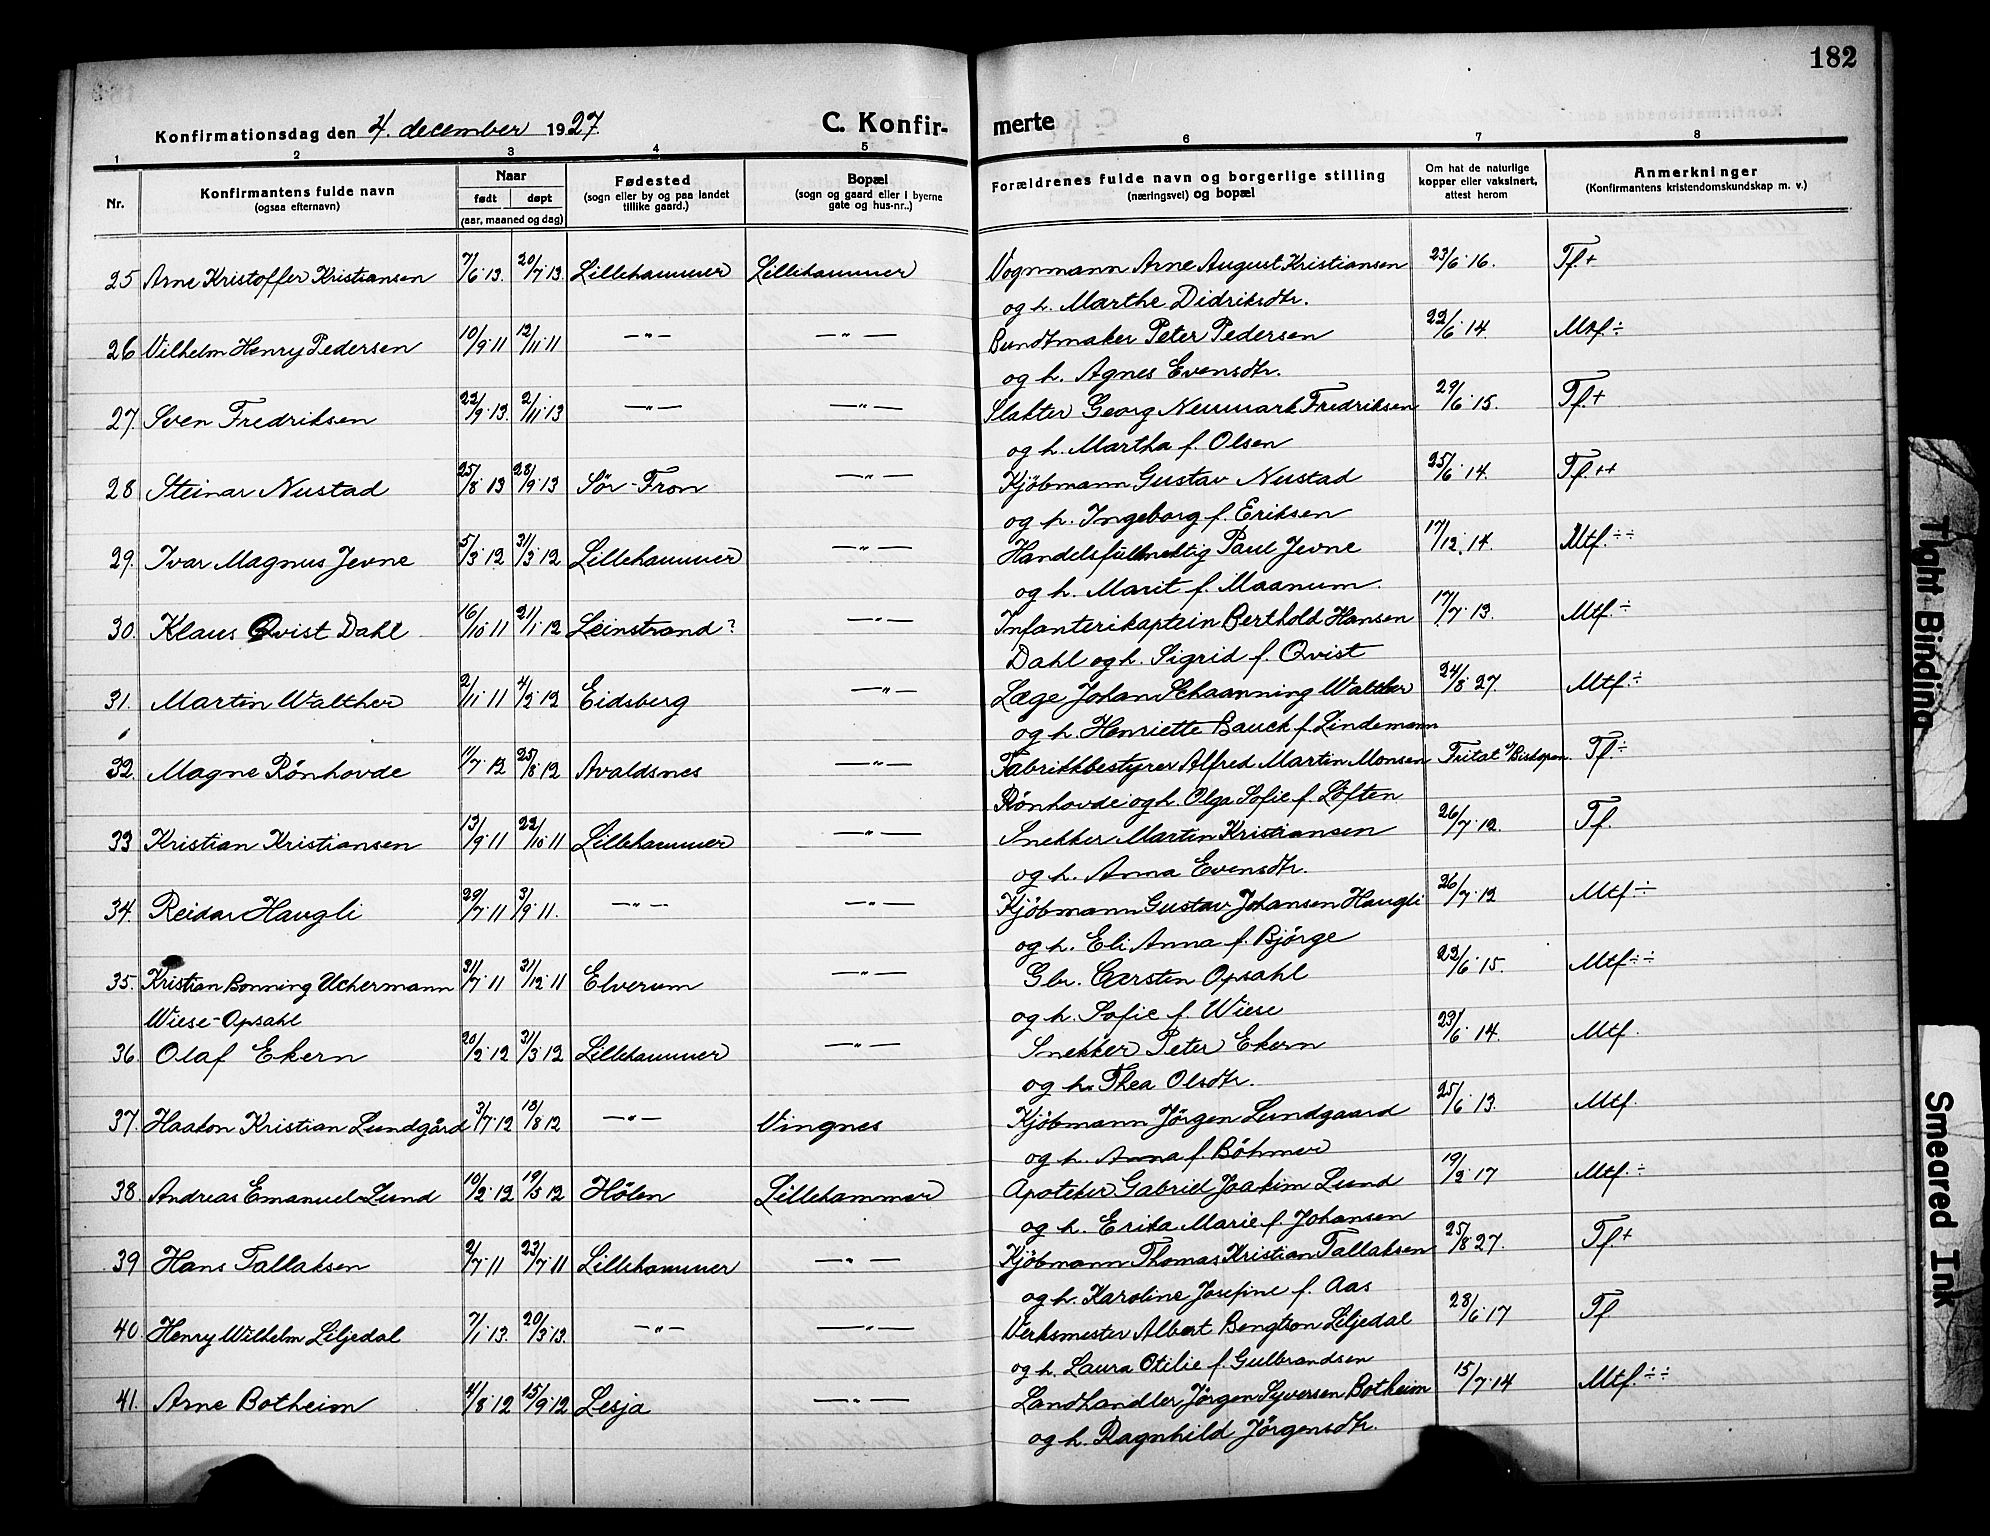 182
Konfirmationsdag den 4. december 1927.
C. Konfirmerte
1 2 3 4 5 6 7 8
Nr. Konfirmantens fulde navn (ogsaa efternavn) Naar født døpt (aar, maaned og dag) Fødested (sogn eller by og paa landet tillike gaard.) Bopæl (sogn og gaard eller i byerne gate og hus-nr..) Forældrenes fulde navn og borgerlige stilling (næringsvei) og bopæl Om hat de naturlige kopper eller vaksinert, attest herom Anmerkninger (Konfirmantens kristendomskundskap m. v.)
25 Arne Kristoffer Kristiansen 7/6 13. 20/7 13. Lillehammer Lillehammer Vognmann Arne August Kristiansen 23/6 16. Tf.+
og h. Marthe Didriksdtr.
26 Vilhelm Henry Pedersen 10/9 11 12/11 11 —"— —"— Bundtmaker Peter Pedersen 22/6 14. Mtf.÷
og h. Agnes Evensdtr.
27 Sven Fredriksen 22/9 13. 2/11 13 —"— —"— Slakter Georg Neumark Fredriksen 29/6 15. Tf.+
og h. Martha f. Olsen
28 Steinar Nustad 25/8 13 28/9 13 Sør-Fron —"— Kjøbmann Gustav Nustad 25/6 14. Tf.++
og h. Ingeborg f. Eriksen
29. Ivar Magnus Jevne 5/3 12 31/3 12 Lillehammer —"— Handelsfullmektig Paul Jevne 17/12 14. Mtf.÷÷
og h. Marit f. Maanum
30. Klaus Qvist Dahl 16/10 11 21/1 12 Leinstrand? —"— Infanterikaptein Berthold Hansen 17/7 13. Mtf.÷
Dahl og h. Sigrid f. Qvist
31. Martin Walther 2/11 11 4/2 12 Eidsberg —"— Læge Johan Schaanning Walther 24/8 27. Mtf.÷
og h. Henriette Bauck f. Lindemann
32. Magne Rønhovde 11/7 12 25/8 12 Avaldsnes —"— Fabrikkbestyrer Alfred Martin Monsen Fritat v/Biskopen. Tf.÷
Rønhovde og h. Olga Sofie f. Løften
33 Kristian Kristiansen 13/9 11 22/10 11 Lillehammer —"— Snekker Martin Kristiansen 26/7 12. Tf.
og h. Anna Evensdtr.
34. Reidar Haugli 29/7 11 3/9 11. —"— —"— Kjøbmann Gustav Johansen Haugli 26/7 12 Mtf.÷
og h. Eli Anna f. Bjørge
35. Kristian Bonning Uchermann 31/7 11 31/12 11 Elverum —"— Gbr. Carsten Opsahl 22/6 15. Mtf÷÷
Wiese-Opsahl og h. Sofie f. Wiese
36. Olaf Ekern 20/2 12 31/3 12 Lillehammer —"— Snekker Peter Ekern 23/6 14. Mtf.
og h. Thea Olsdtr.
37. Haakon Kristian Lundgård 3/7 12 18/8 12 —"— Vingnes Kjøbmann Jørgen Lundgaard 25/6 13. Mtf.
og h. Anna f. Bøhmer
38. Andreas Emanuel Lund 10/2 12 19/5 12 Hølen Lillehammer Apoteker Gabriel Joakim Lund 19/3 17 Mtf.÷
og h. Erika Marie f. Johansen
39 Hans Tallaksen 2/7 11 23/7 11 Lillehammer —"— Kjøbmann Thomas Kristian Tallaksen 25/8 27. Tf.+
og h. Karoline Josefine f. Aas
40. Henry Wilhelm Liljedal 7/1 13. 20/3 13. —"— —"— Verksmester Albert Bengtson Liljedal 28/6 17 Tf.
og h. Laura Otilie f. Gulbrandsen
41. Arne Botheim 4/8 12 15/9 12 Lesja —"— Landhandler Jørgen Syversen Botheim 15/7 14 Mtf.÷÷
og h. Ragnhild Jørgensdtr.
Tight Binding
Smeared Ink